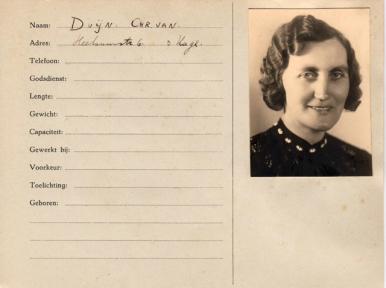 Naam: DUIJN. CHR. VAN.
Adres: 6 's Hage.
Telefoon:
Godsdienst:
Lengte:
Gewicht:
Capaciteit:
Gewerkt bij:
Voorkeur:
Toelichting:
Geboren: